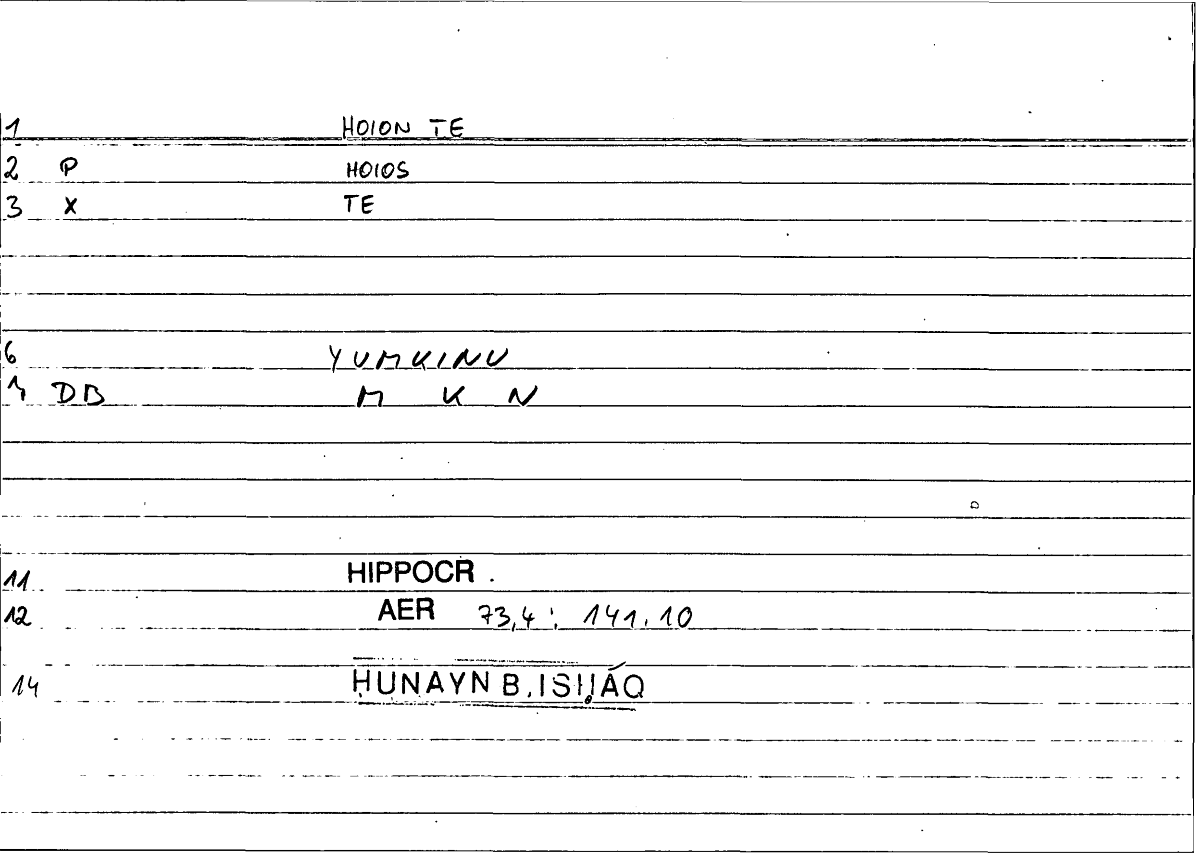 1 HOION TE
2 P HOIOS
3 X TE
6 YUMKINU
7 DB M K N
11 HIPPOCR.
12 AER 73,4 : 141.10
14 ḤUNAYN B. ISḤÁQ